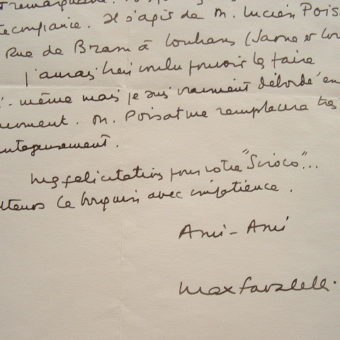 confiance. Il s'agit de M. Lucien Pois
Rue de Bram à Louhans (Saone et Loir
J'aurais bien voulu pouvoir le faire
même mais je suis vraiment débordé en
moment. M. Poisat me remplacera très
ntageusement.
Mes félicitations pour votre "Siroco"...
ttens ce bouquin avec impatience.
Ami-Ami
Max Favalelli.